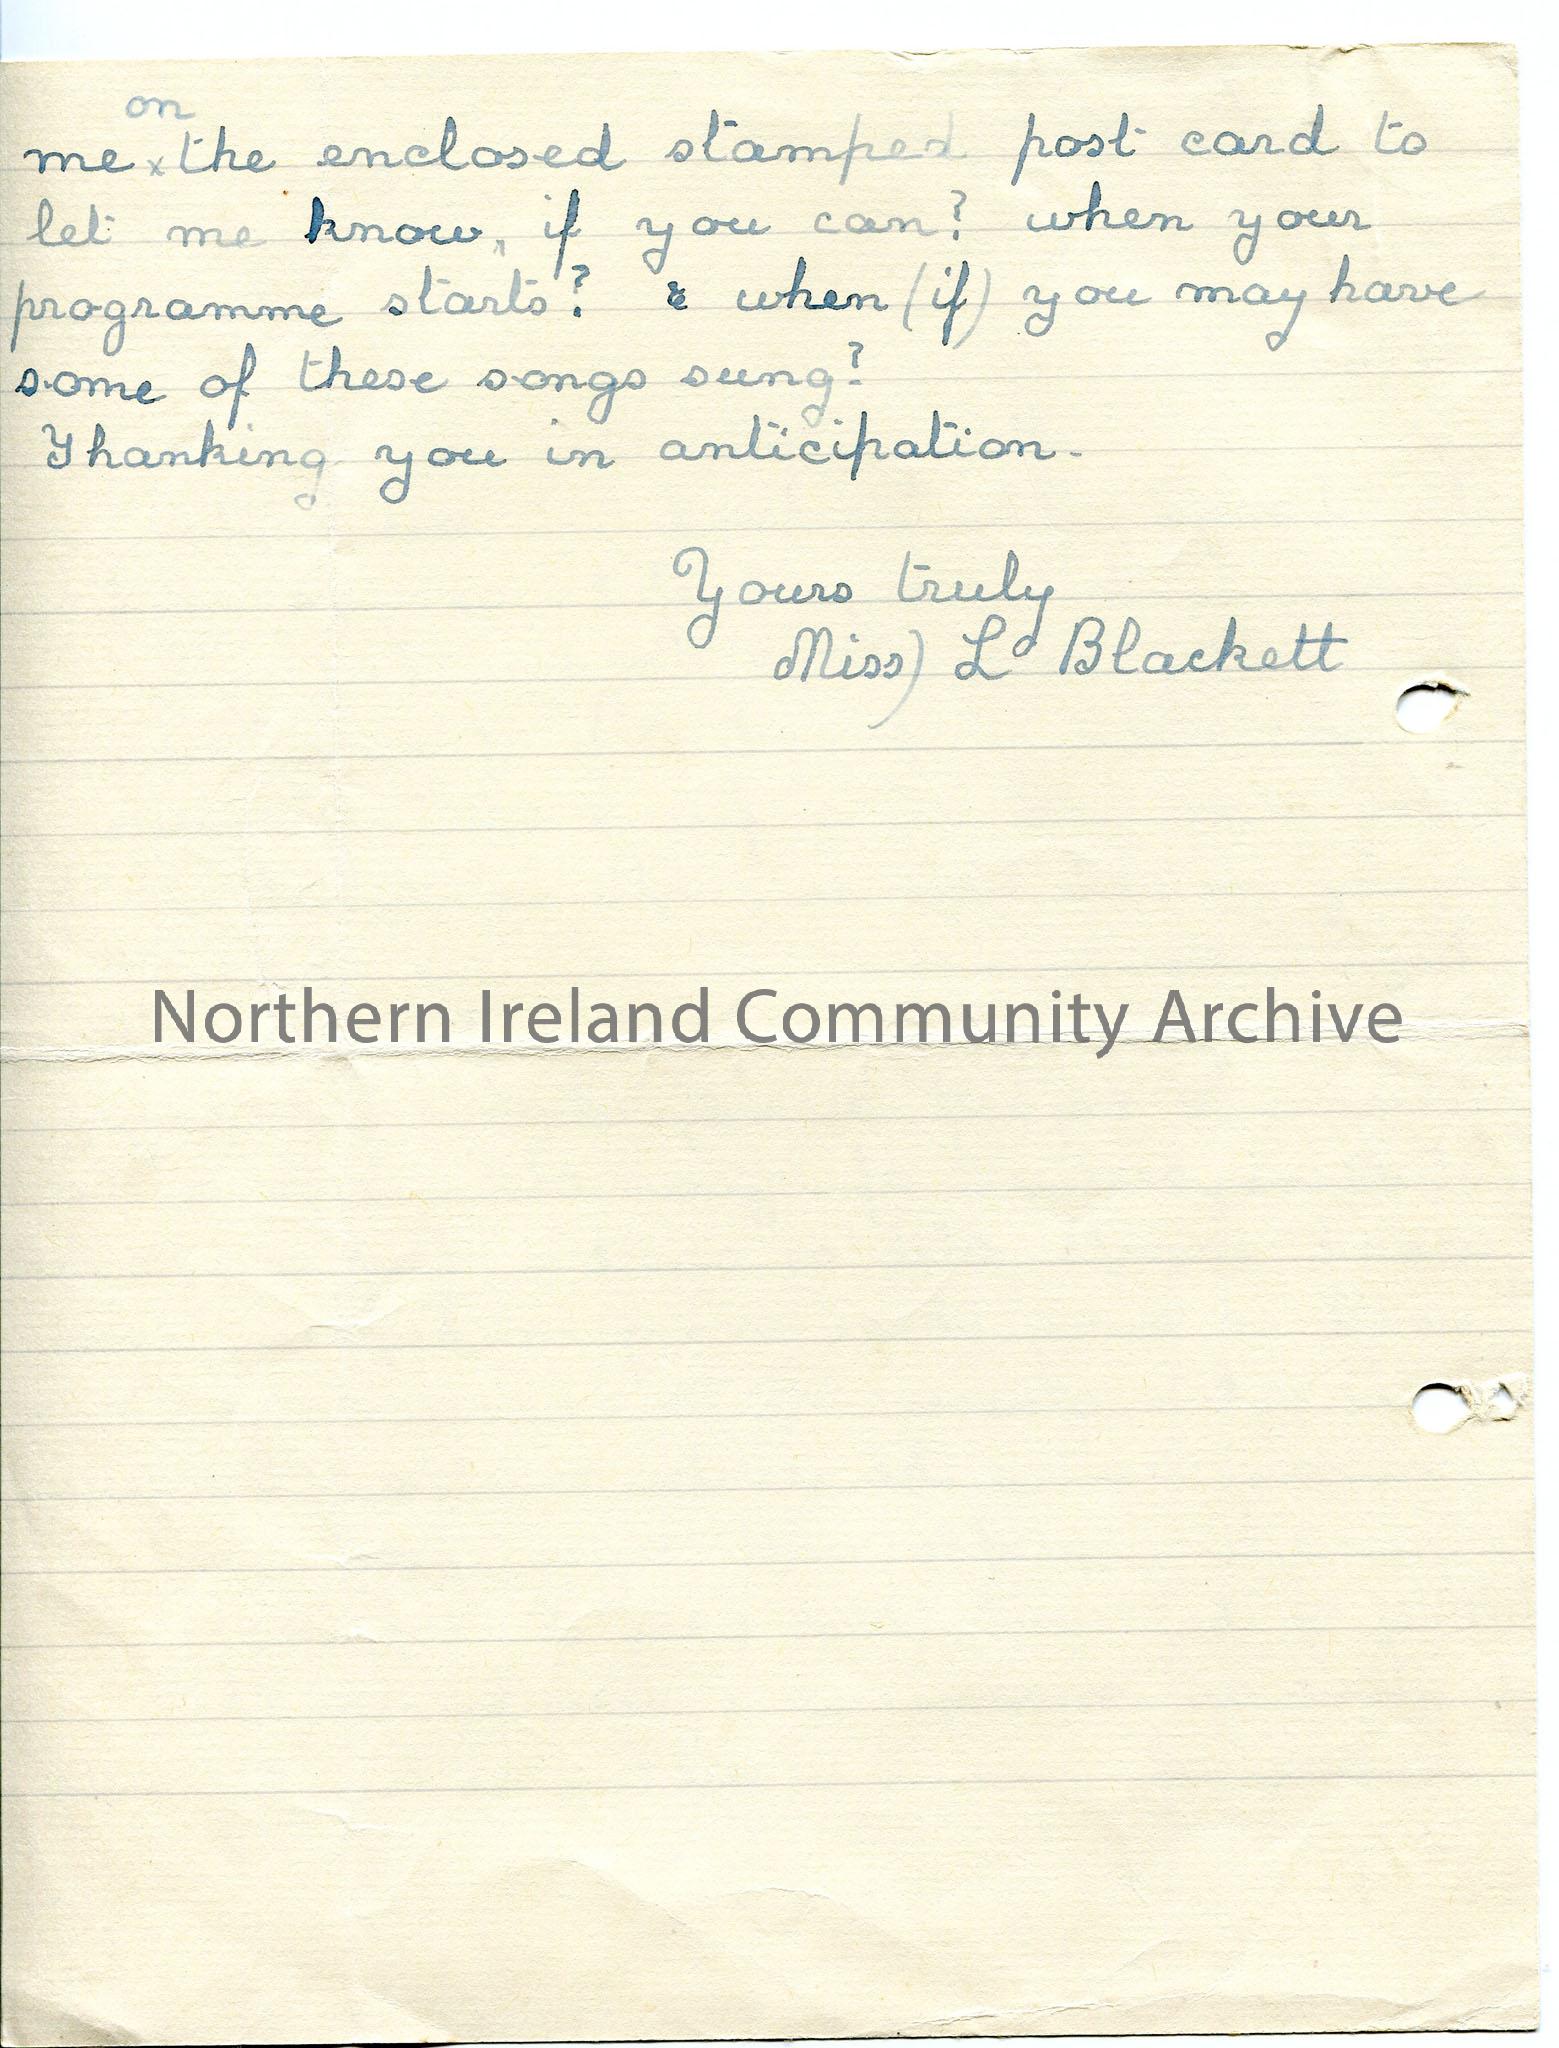 on
me x the enclosed stamped post card to
let me know, if you can? when your
programme starts? & when (if) you may have
some of these songs sung?
Thanking you in anticipation.
Yours truly
Miss) L Blackett
Northern Ireland Community Archive